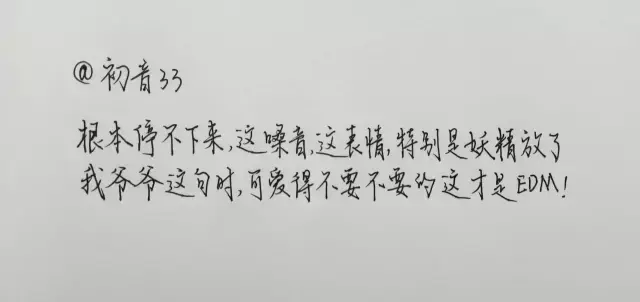 @初音33
根本停不下来,这嗓音,这表情,特别是妖精放了
我爷爷这句时,可爱得不要不要的这才是EDM!